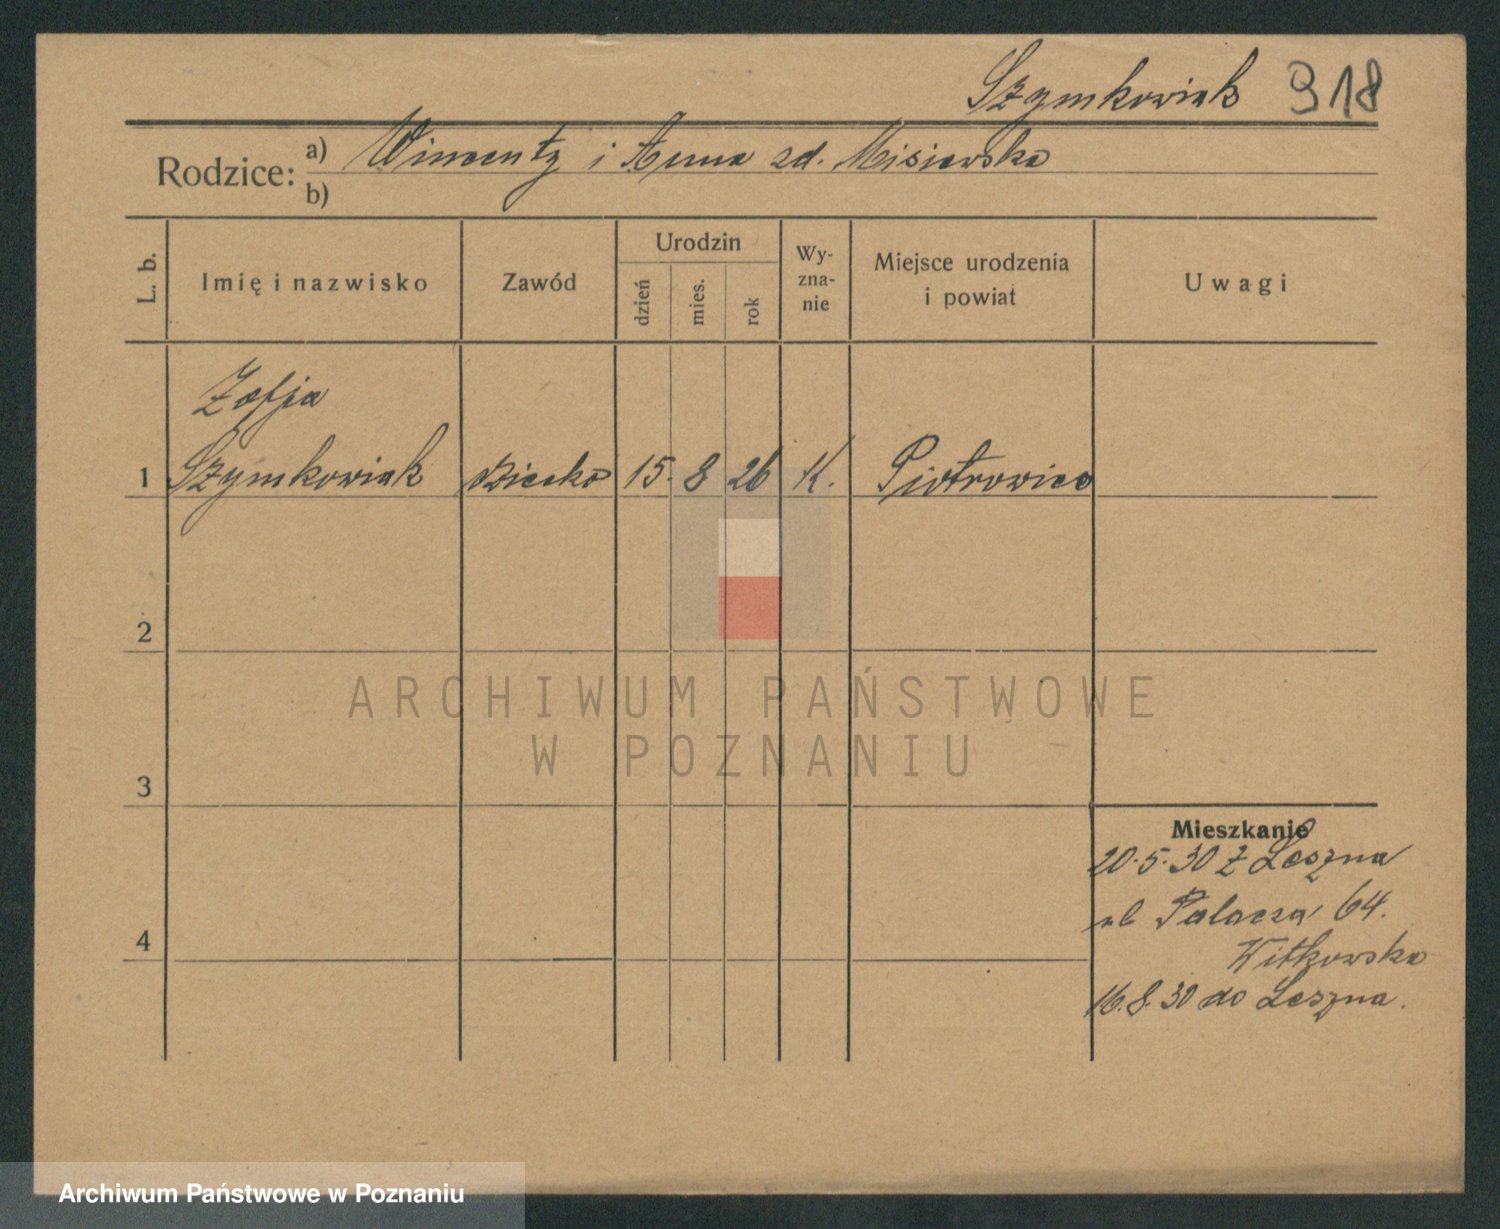 Szymkowiak 318
Rodzice: a) Wincenty i Anna zd. Misiewska
b)
L. b.
Imię i nazwisko
Zawód
Urodzin
dzień
mies.
rok
Wy-
zna-
nie
Miejsce urodzenia
i powiat
Uwagi
Zofja
1 Szymkowiak dziecko 15. 8 26 K. Piotrowice
2
3
4
ARCHIWUM PAŃSTWOWE
W POZNANIU
Mieszkanie
20.5.30 z Leszna
ul Palacza 64.
Witkowska
16.8.30 do Leszna.
Archiwum Państwowe w Poznaniu